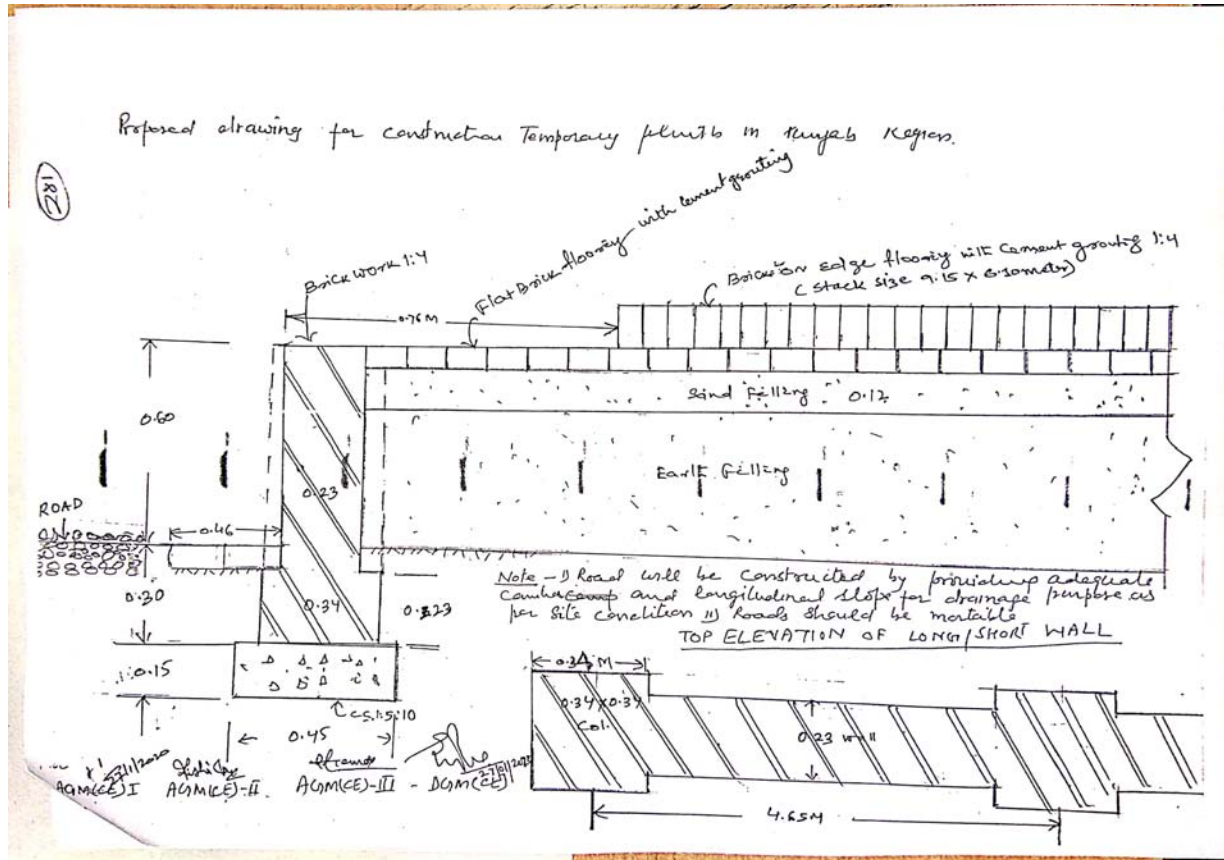 Proposed drawing for construction Temporary plinth in Punjab Region.
182
Brick work 1:4
Flat Brick flooring with cement grouting
Brick on edge flooring with Cement grouting 1:4
( stack size 9.15 x 6.10 meter)
0.76 M
0.60
Sand Filling 0.12
Earth Filling
0.23
ROAD
0.46
0.30
0.34
0.23
Note - I) Road will be constructed by providing adequate
camber and longitudinal slope for drainage purpose as
per site condition II) Roads should be
TOP ELEVATION OF LONG/SHORT WALL
0.15
0.34 M
0.34 x 0.34
Col.
0.23 wall
1:5:10
0.45
4.65M
AGM(CE) I AGM(CE)-II. AGM(CE)-III - DGM(CE)